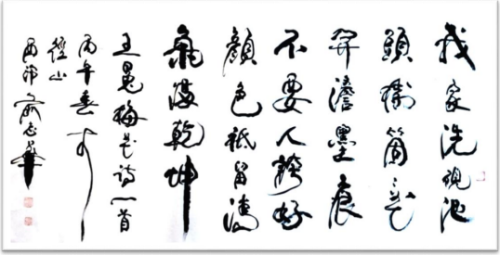 我家洗硯池
頭樹箇々花
開澹墨痕
不要人誇好
顏色祗留清
氣滿乾坤
王冕梅花詩一首
丙午春
山